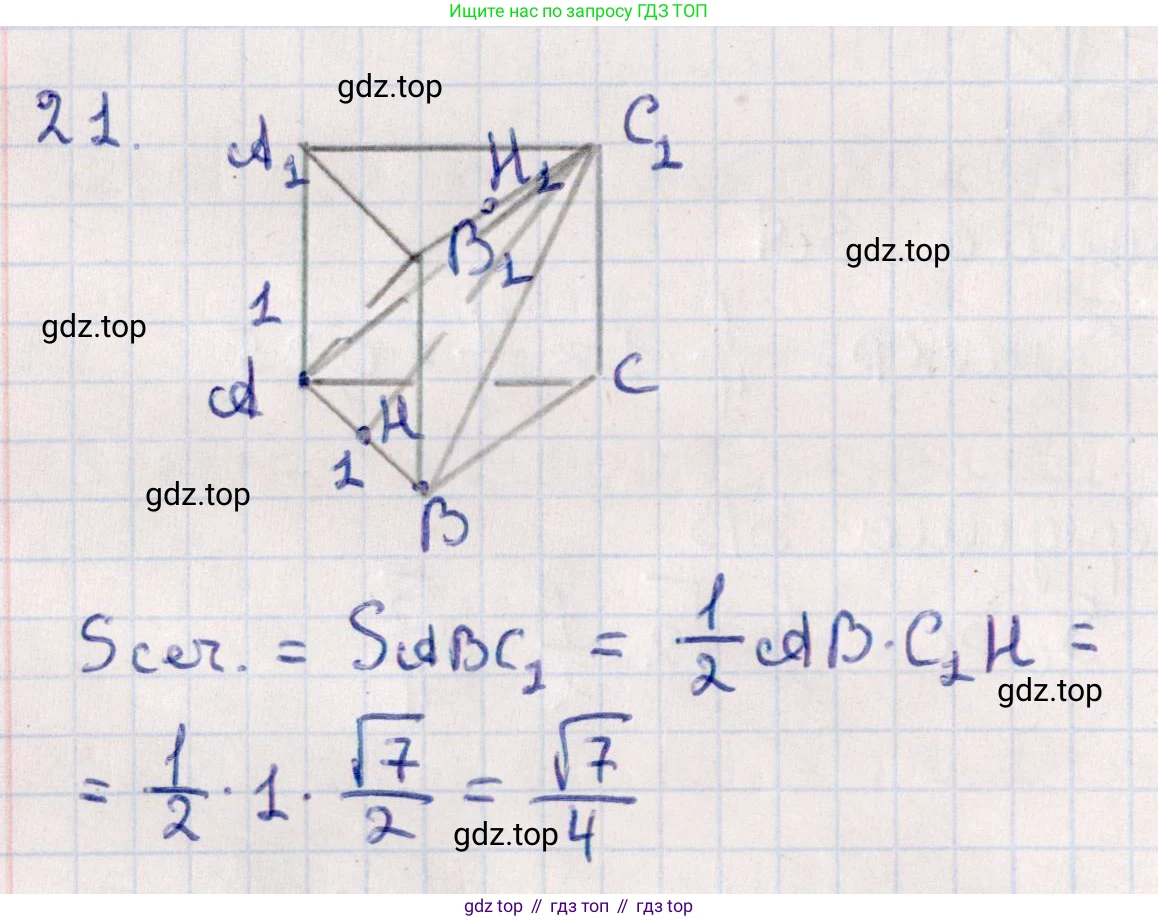 Ищите нас по запросу ГДЗ ТОП
21.
gdz.top
A₁
H₁
C₁
B₁
gdz.top
1
gdz.top
A
H
C
1
gdz.top
B
Sсеч. = SABC₁ = 1/2 AB · C₁H =
gdz.top
= 1/2 · 1 · √7/2 = √7/4
gdz.top
gdz top // гдз топ // гдз top